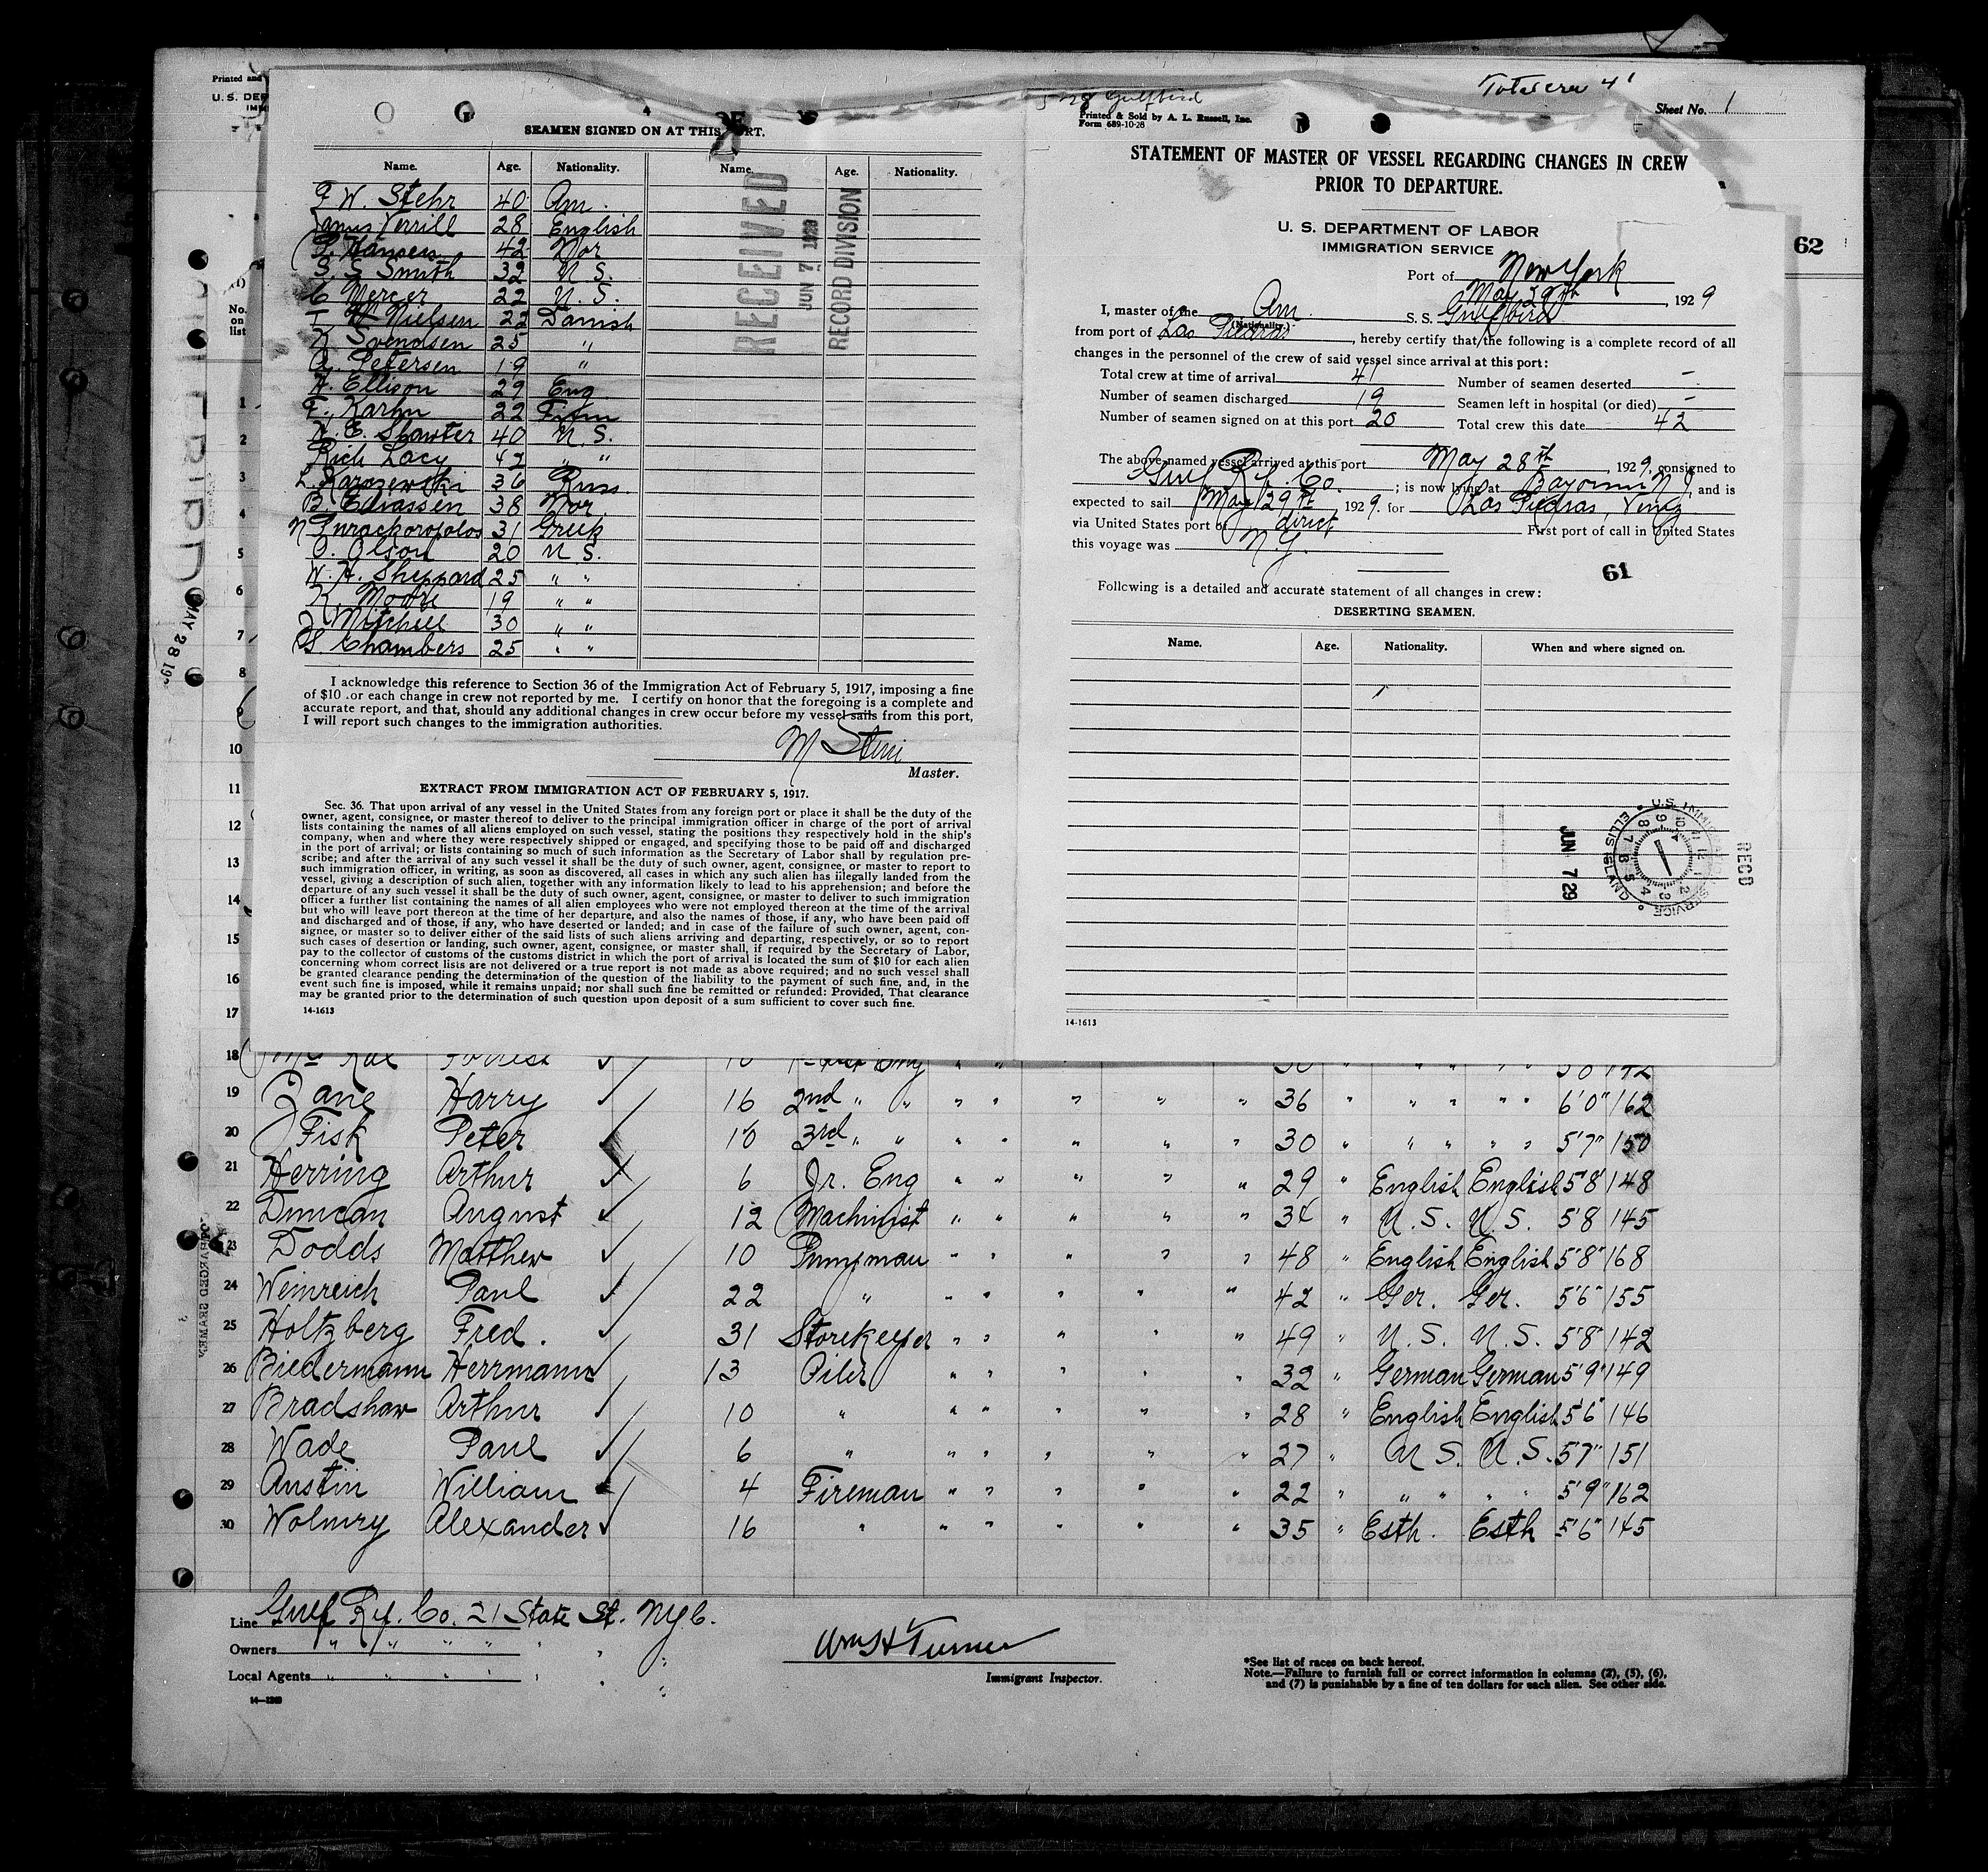 Total crew 41
5-28 Gulfbird
Sheet No. 1
Printed and
U. S. DEP
IMM
SEAMEN SIGNED ON AT THIS PORT.
Name. Age. Nationality. Name. Age. Nationality.
F W. Stehr 40 Am.
James Verrill 28 English
P. Hansen 42 Nor
S. S Smith 32 U. S.
C Mercer 22 U. S.
T W Nielsen 22 Danish
K Svendsen 25 " "
O. Petersen 19 "
H. Ellison 29 Eng
F. Karhn 22 Finn
H. E. Showter 40 U. S.
Rich Lacy 42 " "
L. Karozewski 36 Russ.
B. Edvassen 38 Nor.
N 31 Greek
O. Olson 20 U S.
W. H. Sheppard 25 " "
K. Moore 19 " "
J Mitchell 30 " "
S Chambers 25 " "
RECEIVED
JUN 7 1929
RECORD DIVISION
I acknowledge this reference to Section 36 of the Immigration Act of February 5, 1917, imposing a fine
of $10 .or each change in crew not reported by me. I certify on honor that the foregoing is a complete and
accurate report, and that, should any additional changes in crew occur before my vessel sails from this port,
I will report such changes to the immigration authorities.
M
Master.
EXTRACT FROM IMMIGRATION ACT OF FEBRUARY 5, 1917.
Sec. 36. That upon arrival of any vessel in the United States from any foreign port or place it shall be the duty of the
owner, agent, consignee, or master thereof to deliver to the principal immigration officer in charge of the port of arrival
lists containing the names of all aliens employed on such vessel, stating the positions they respectively hold in the ship's
company, when and where they were respectively shipped or engaged, and specifying those to be paid off and discharged
in the port of arrival; or lists containing so much of such information as the Secretary of Labor shall by regulation pre-
scribe; and after the arrival of any such vessel it shall be the duty of such owner, agent, consignee, or master to report to
such immigration officer, in writing, as soon as discovered, all cases in which any such alien has illegally landed from the
vessel, giving a description of such alien, together with any information likely to lead to his apprehension; and before the
departure of any such vessel it shall be the duty of such owner, agent, consignee, or master to deliver to such immigration
officer a further list containing the names of all alien employees who were not employed thereon at the time of the arrival
but who will leave port thereon at the time of her departure, and also the names of those, if any, who have been paid off
and discharged and of those, if any, who have deserted or landed; and in case of the failure of such owner, agent, con-
signee, or master so to deliver either of the said lists of such aliens arriving and departing, respectively, or so to report
such cases of desertion or landing, such owner, agent, consignee, or master shall, if required by the Secretary of Labor,
pay to the collector of customs of the customs district in which the port of arrival is located the sum of $10 for each alien
concerning whom correct lists are not delivered or a true report is not made as above required; and no such vessel shall
be granted clearance pending the determination of the question of the liability to the payment of such fine, and, in the
event such fine is imposed, while it remains unpaid; nor shall such fine be remitted or refunded: Provided, That clearance
may be granted prior to the determination of such question upon deposit of a sum sufficient to cover such fine.
14-1613
Printed & Sold by A. L. Russell, Inc.
Form 689-10-28
STATEMENT OF MASTER OF VESSEL REGARDING CHANGES IN CREW
PRIOR TO DEPARTURE.
U. S. DEPARTMENT OF LABOR
IMMIGRATION SERVICE
62
Port of New York
May 29th, 1929
I, master of the Am (Nationality.) S. S. Gulfbird
from port of Las Piedras, hereby certify that the following is a complete record of all
changes in the personnel of the crew of said vessel since arrival at this port:
Total crew at time of arrival 41 Number of seamen deserted -
Number of seamen discharged 19 Seamen left in hospital (or died) -
Number of seamen signed on at this port 20 Total crew this date 42
The above-named vessel arrived at this port May 28th, 1929, consigned to
Gulf Ref. Co. ; is now lying at Bayonne N J, and is
expected to sail May 29th, 1929. for Las Piedras, Venez
via United States port of direct First port of call in United States
this voyage was N. Y.
61
Following is a detailed and accurate statement of all changes in crew:
DESERTING SEAMEN.
Name. Age. Nationality. When and where signed on.
U.S. IMMIGRATION SERVICE ELLIS ISLAND
JUN 7 29
RECD
14-1613
No.
on
list
MAY 28 19
1
2
3
4
5
6
7
8
9
10
11
12
13
14
15
16
17
18 Mc Rae Forrest
19 Zane Harry 16 2nd " " " " " " " 36 " " " " " 6'0" 162
20 Fisk Peter 10 3rd " " " " " " " 30 " " " " " 5'7" 150
21 Herring Arthur 6 Jr. Eng " " " " " 29 " English English 5'8 148
22 Duncan August 12 Machinist " " " " " 34 " U. S. U. S. 5'8 145
23 Dodds Matthew 10 Pumpman " " " " " 48 " English English 5'8" 168
24 Weinreich Paul 22 " " " " " " 42 " Ger. Ger. 5'6" 155
25 Holtzberg Fred. 31 Storekeeper " " " " " 49 " U. S. U. S. 5'8" 142
26 Biedermann Herrmann 13 Oiler " " " " " 32 " German German 5'9" 149
27 Bradshaw Arthur 10 " " " " " " 28 " English English 5'6" 146
28 Wade Paul 6 " " " " " " 27 " U S. U. S. 5'7" 151
29 Austin William 4 Fireman " " " " " 22 " " " " " 5'9" 162
30 Wolmry Alexander 16 " " " " " " 35 " Esth. Esth 5'6" 145
Line Gulf Rf. Co. 21 State St. NYC.
Owners " " " " " " "
Local Agents " " " " " " "
14—1240
Wm H Turner
Immigrant Inspector.
*See list of races on back hereof.
Note.—Failure to furnish full or correct information in columns (2), (5), (6),
and (7) is punishable by a fine of ten dollars for each alien. See other side.